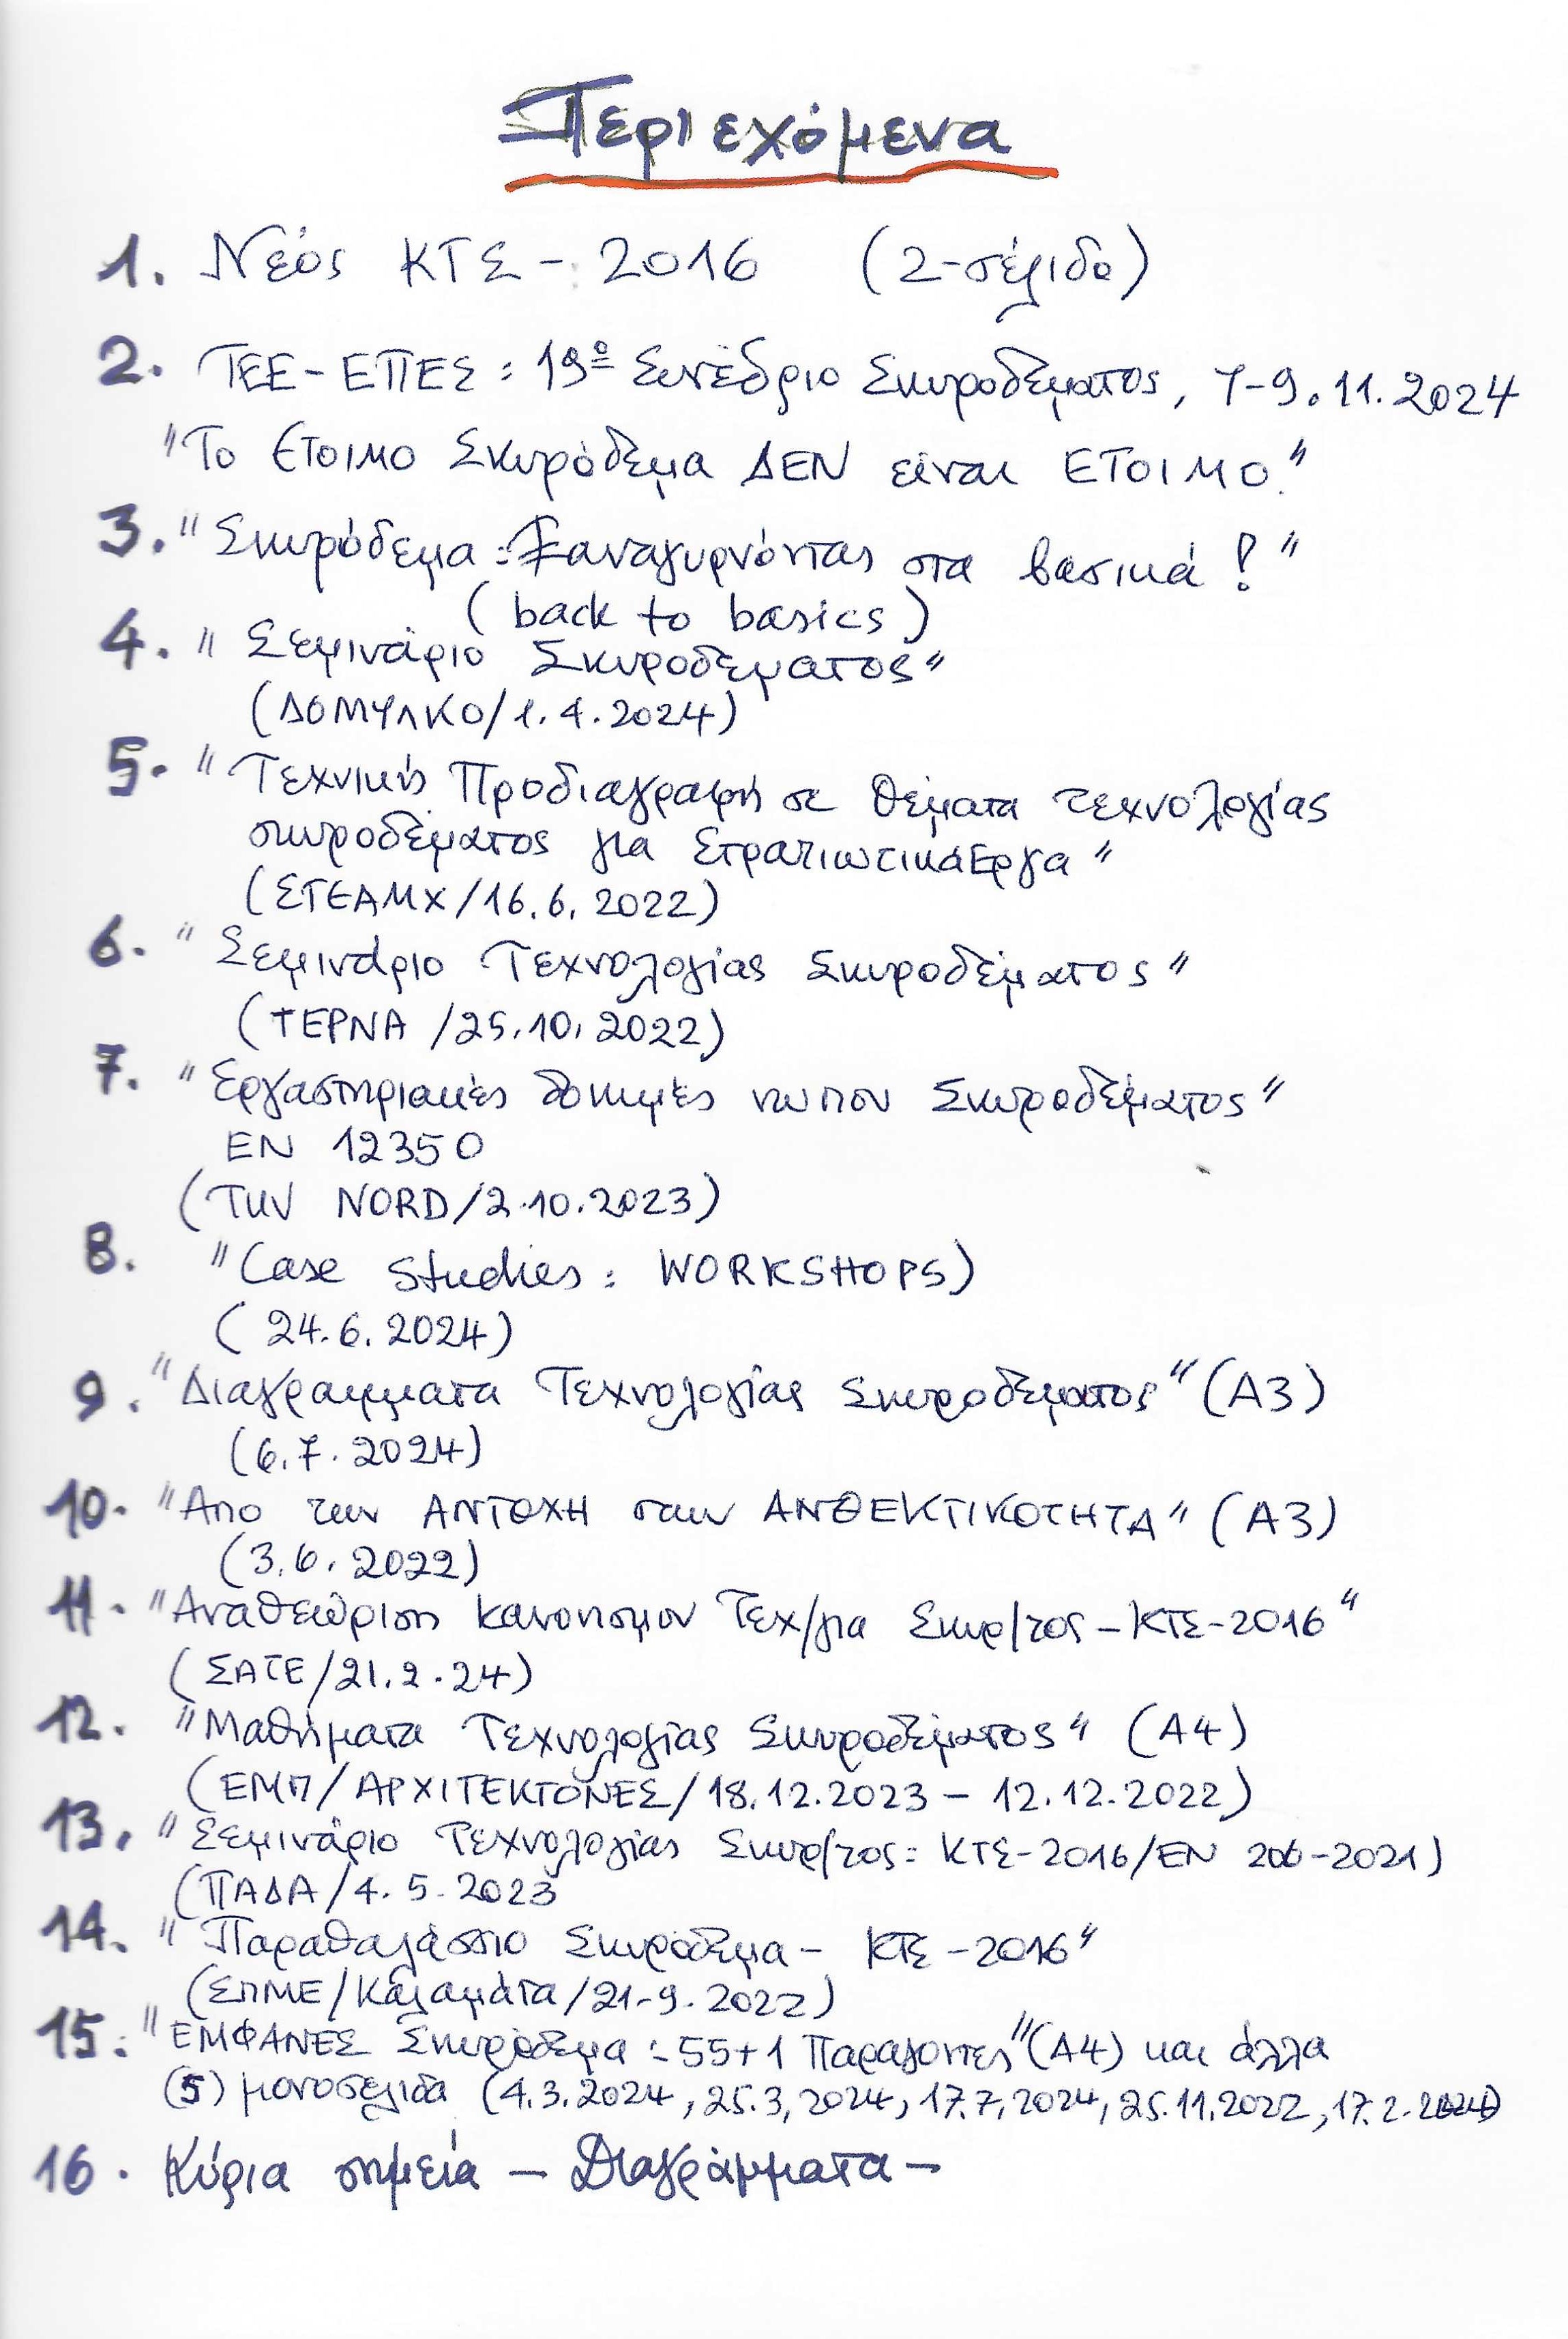 Περιεχόμενα
1. Νέος ΚΤΣ - 2016 (2-σέλιδο)
2. ΤΕΕ-ΕΠΕΣ : 19º Συνέδριο Σκυροδέματος, 7-9.11.2024
"Το Ετοιμο Σκυρόδεμα ΔΕΝ είναι ΕΤΟΙΜΟ"
3. "Σκυρόδεμα : Ξαναγυρνόντας στα βασικά!"
(back to basics)
4. "Σεμινάριο Σκυροδεματος"
(ΔΟΜΥΛΚΟ/1.4.2024)
5. "Τεχνική Προδιαγραφή σε θέματα τεχνολογίας
σκυροδέματος για Στρατιωτικά Εργα"
(ΣΤΕΑΜΧ/16.6.2022)
6. "Σεμινάριο Τεχνολογίας Σκυροδέματος"
(ΤΕΡΝΑ /25.10.2022)
7. "Εργαστηριακές δοκιμές νωπου Σκυροδέματος"
EN 12350
(TUV NORD/2.10.2023)
8. "Case Studies : WORKSHOPS)
(24.6.2024)
9. "Διαγραμματα Τεχνολογίας Σκυροδέματος" (Α3)
(6.7.2024)
10. "Απο την ΑΝΤΟΧΗ στην ΑΝΘΕΚΤΙΚΟΤΗΤΑ" (Α3)
(3.6.2022)
11. "Αναθεώριση κανονισμου Τεχ/για Σκυρ/τος - ΚΤΣ-2016"
(ΣΑΤΕ/21.2.24)
12. "Μαθήματα Τεχνολογίας Σκυροδέματος" (Α4)
(ΕΜΠ/ΑΡΧΙΤΕΚΤΟΝΕΣ/18.12.2023 - 12.12.2022)
13. "Σεμινάριο Τεχνολογίας Σκυρ/τος: ΚΤΣ-2016/EN 206-2021)
(ΠΑΔΑ/4.5.2023
14. "Παραθαλάσσιο Σκυρόδεμα - ΚΤΣ-2016"
(ΣΠΜΕ/Καλαμάτα/21-9.2022)
15. "ΕΜΦΑΝΕΣ Σκυρόδεμα : 55+1 Παραγοντες" (Α4) και άλλα
(5) μονοσελιδα (4.3.2024, 25.3.2024, 17.7.2024, 25.11.2022, 17.2.2024)
16. Κύρια σημεία - Διαγράμματα -